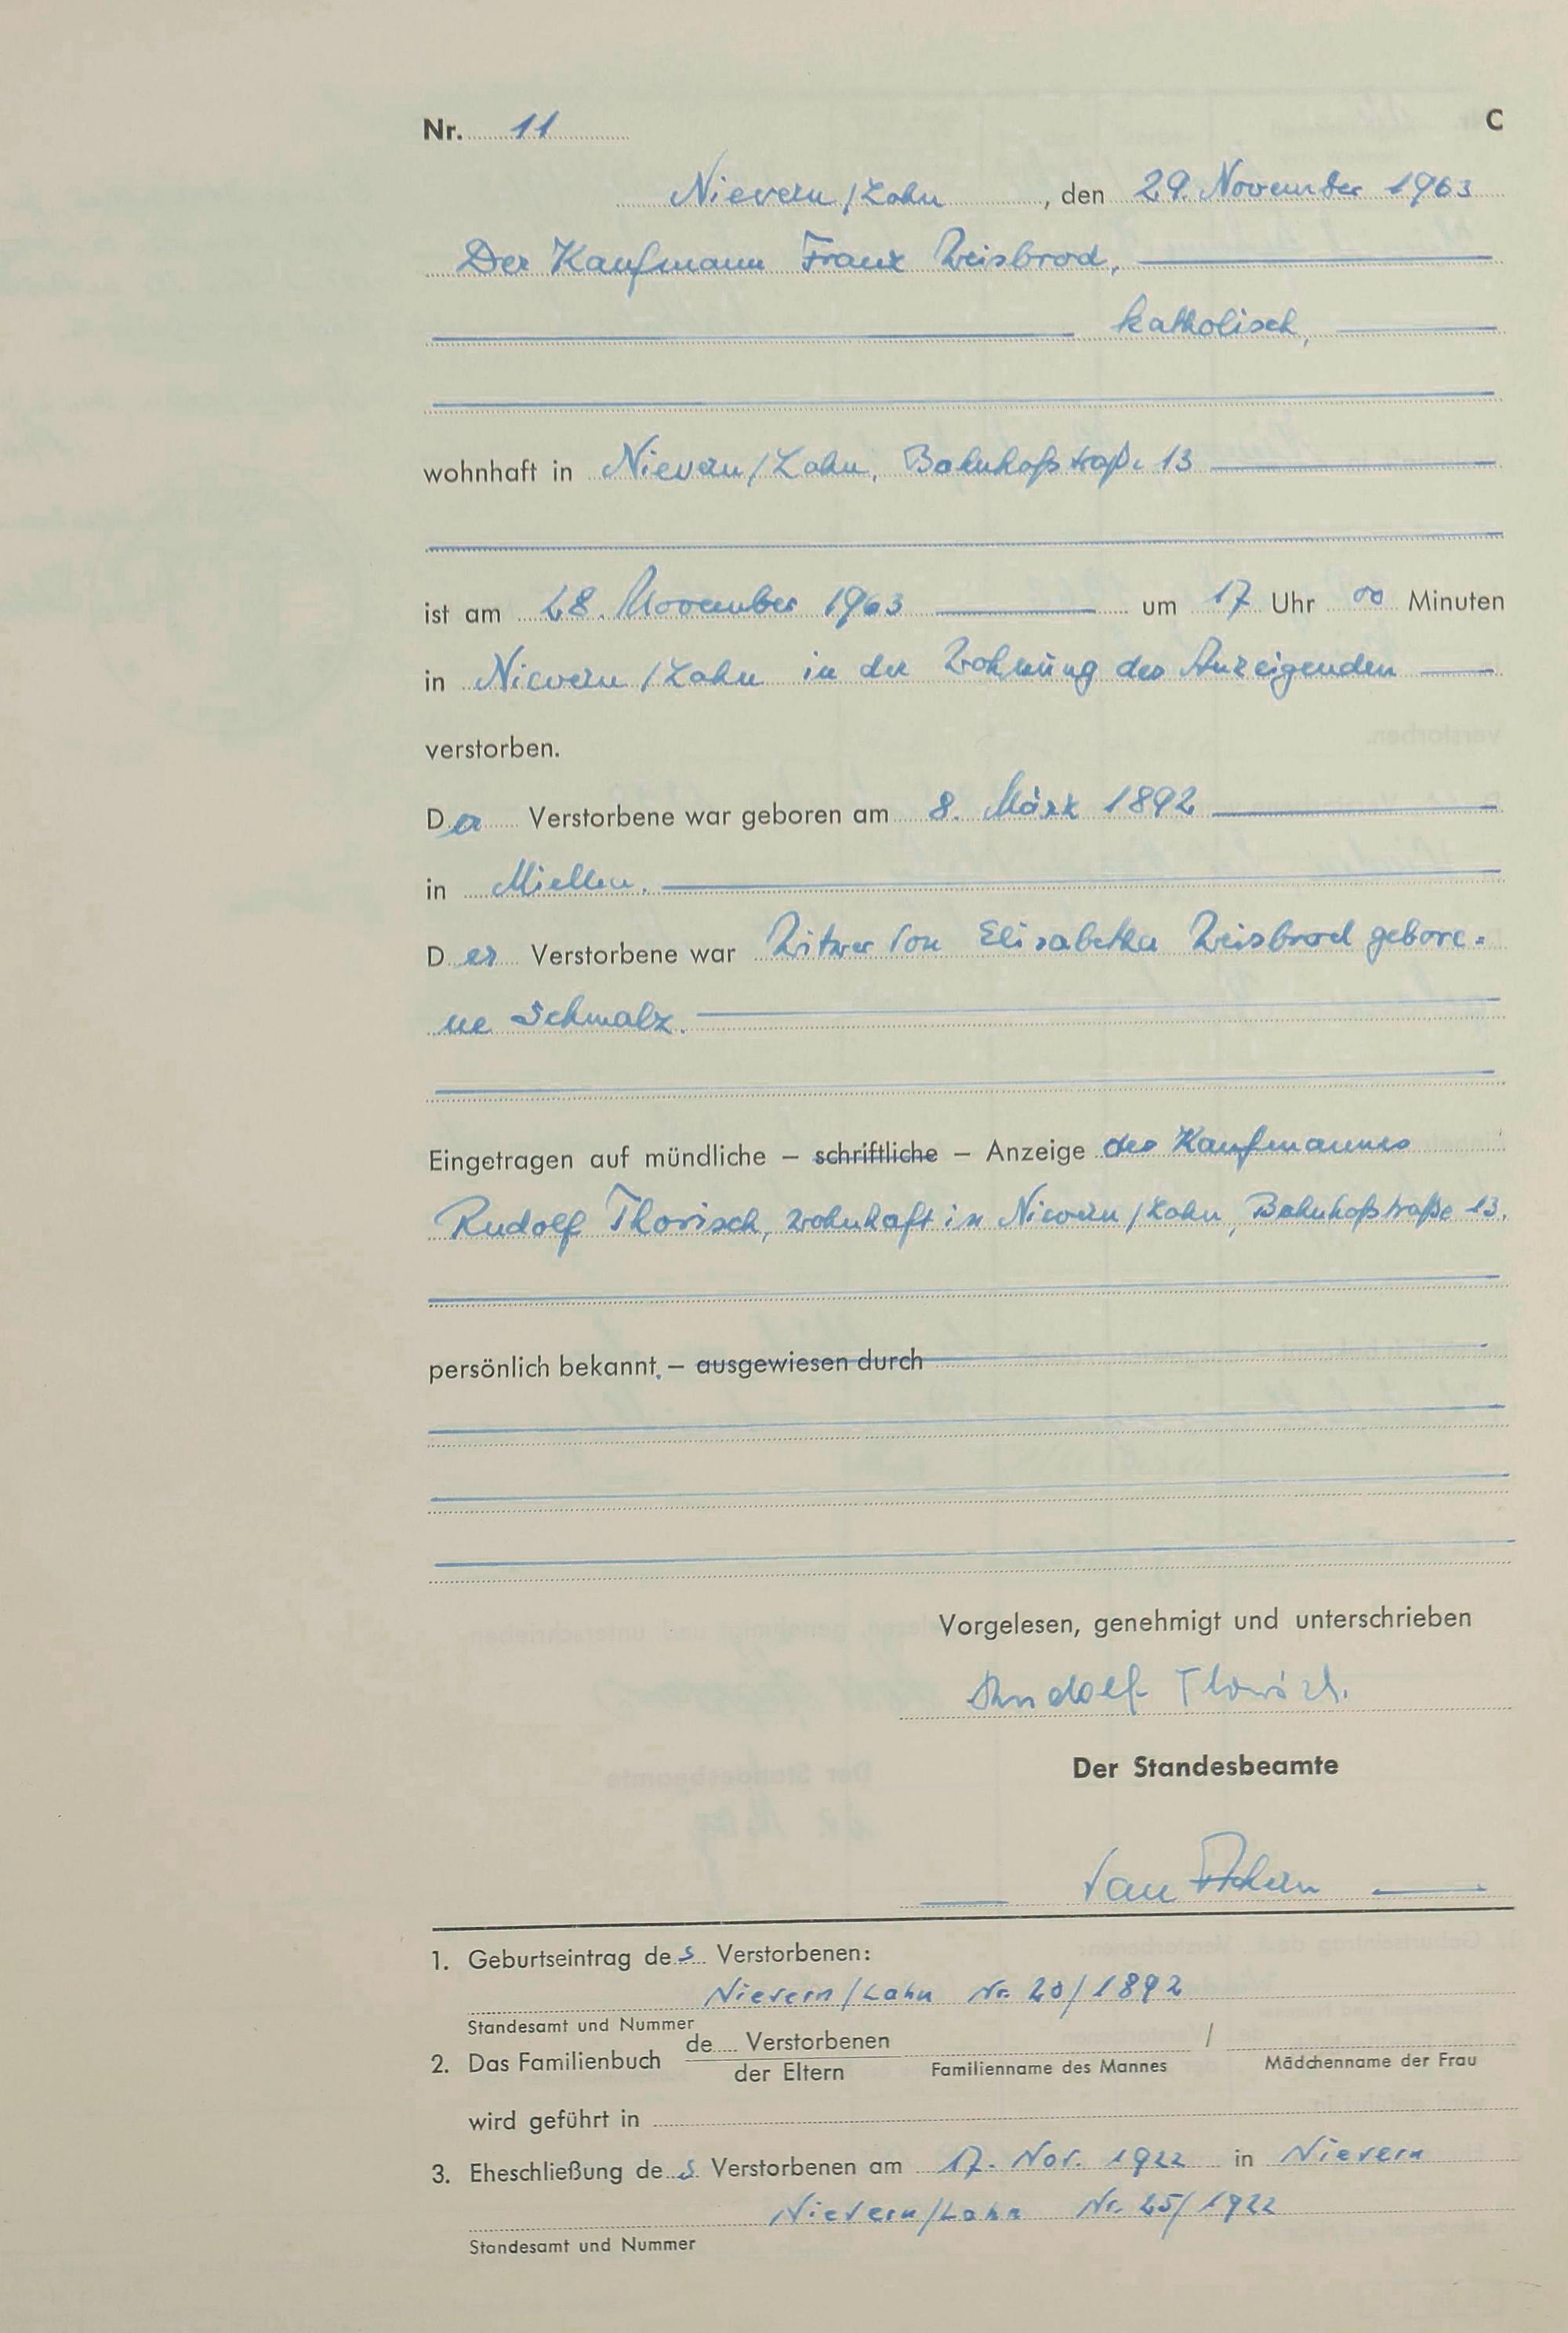 Nr. 11 C
Nievern/Lahn, den 29. November 1963
Der Kaufmann Franz Weisbrod,
katholisch,
wohnhaft in Nievern/Lahn, Bahnhofstraße 13
ist am 28. November 1963 um 17 Uhr 00 Minuten
in Nievern/Lahn in der Wohnung des Anzeigenden
verstorben.
Der Verstorbene war geboren am 8. März 1892
in Miellen.
Der Verstorbene war Witwer von Elisabetha Weisbrod gebore=
ne Schmalz.
Eingetragen auf mündliche – schriftliche – Anzeige des Kaufmannes
Rudolf Thorisch, wohnhaft in Nievern/Lahn, Bahnhofstraße 13.
persönlich bekannt. – ausgewiesen durch
Vorgelesen, genehmigt und unterschrieben
Rudolf Thorisch.
Der Standesbeamte
1. Geburtseintrag des Verstorbenen:
Nievern/Lahn Nr. 20/1892
Standesamt und Nummer
2. Das Familienbuch de Verstorbenen /
der Eltern Familienname des Mannes Mädchenname der Frau
wird geführt in
3. Eheschließung des Verstorbenen am 17. Nov. 1922 in Nievern
Nievern/Lahn Nr. 25/1922
Standesamt und Nummer